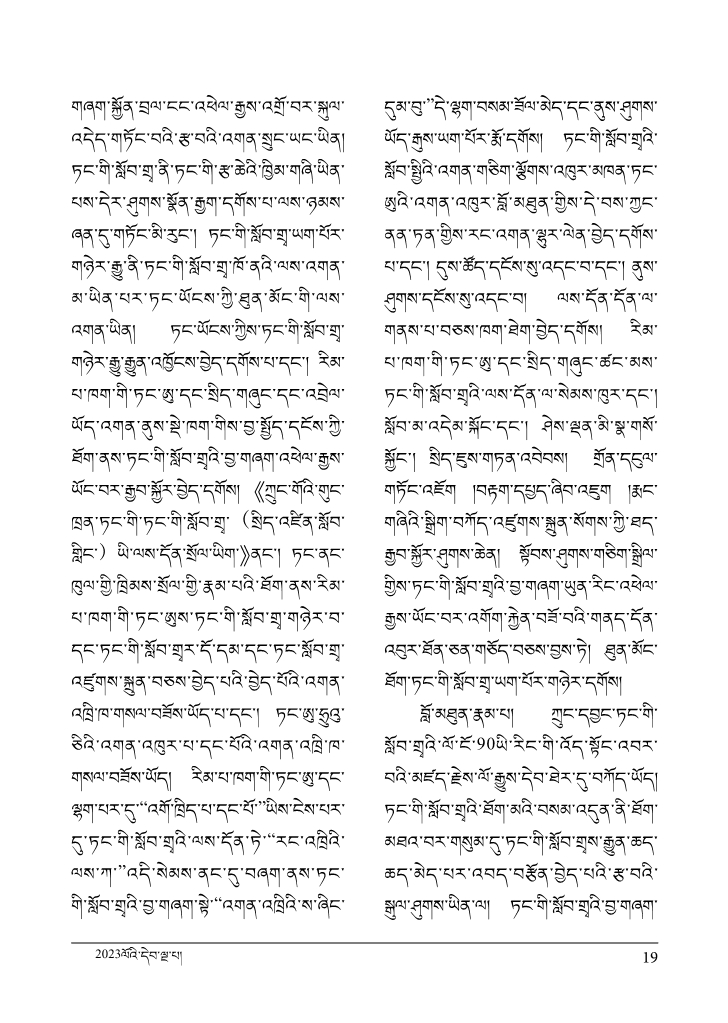 གཞག་སྐྱོན་བྲལ་ངང་འཕེལ་རྒྱས་འགྲོ་བར་སྐུལ་
འདེད་གཏོང་བའི་རྩ་བའི་འགན་སྲུང་ཡང་ཡིན།
ཏང་གི་སློབ་གྲྭ་ནི་ཏང་གི་རྩ་ཆེའི་ཁྲིམ་གཞི་ཡིན་
པས་དེར་ཤུགས་སྣོན་རྒྱག་དགོས་པ་ལས་ཉམས་
ཞན་དུ་གཏོང་མི་རུང་། ཏང་གི་སློབ་གྲྭ་ཡག་པོར་
གཉེར་རྒྱུ་ནི་ཏང་གི་སློབ་གྲྭ་ཁོ་ནའི་ལས་འགན་
མ་ཡིན་པར་ཏང་ཡོངས་ཀྱི་ཐུན་མོང་གི་ལས་
འགན་ཡིན། ཏང་ཡོངས་ཀྱིས་ཏང་གི་སློབ་གྲྭ་
གཉེར་རྒྱུ་རྒྱུན་འཁྱོངས་བྱེད་དགོས་པ་དང་། རིམ་
པ་ཁག་གི་ཏང་ཨུ་དང་སྲིད་གཞུང་དང་འབྲེལ་
ཡོད་འགན་ནུས་སྡེ་ཁག་གིས་བྱ་སྤྱོད་དངོས་ཀྱི་
ཐོག་ནས་ཏང་གི་སློབ་གྲྭའི་བྱ་གཞག་འཕེལ་རྒྱས་
ཡོང་བར་རྒྱབ་སྐྱོར་བྱེད་དགོས། 《ཀྲུང་གོའི་གུང་
ཁྲན་ཏང་གི་ཏང་གི་སློབ་གྲྭ་ （སྲིད་འཛིན་སློབ་
གླིང་） ཡི་ལས་དོན་སྲོལ་ཡིག》ནང་། ཏང་ནང་
ཁུལ་གྱི་ཁྲིམས་སྲོལ་གྱི་རྣམ་པའི་ཐོག་ནས་རིམ་
པ་ཁག་གི་ཏང་ཨུས་ཏང་གི་སློབ་གྲྭ་གཉེར་བ་
དང་ཏང་གི་སློབ་གྲྭར་དོ་དམ་དང་ཏང་སློབ་གྲྭ་
འཛུགས་སྐྲུན་བཅས་བྱེད་པའི་བྱེད་པོའི་འགན་
འཁྲི་ཁ་གསལ་བཟོས་ཡོད་པ་དང་། ཏང་ཨུ་ཧྲུའུ་
ཅིའི་འགན་འཁུར་པ་དང་པོའི་འགན་འཁྲི་ཁ་
གསལ་བཟོས་ཡོད། རིམ་པ་ཁག་གི་ཏང་ཨུ་དང་
ལྷག་པར་དུ་“འགོ་ཁྲིད་པ་དང་པོ་”ཡིས་ངེས་པར་
དུ་ཏང་གི་སློབ་གྲྭའི་ལས་དོན་ཏེ་“རང་འཁྲིའི་
ལས་ཀ་”འདི་སེམས་ནང་དུ་བཞག་ནས་ཏང་
གི་སློབ་གྲྭའི་བྱ་གཞག་སྟེ་“འགན་འཁྲིའི་ས་ཞིང་
དུམ་བུ་”དེ་ལྷག་བསམ་ཟོལ་མེད་དང་ནུས་ཤུགས་
ཡོད་རྒུས་ཡག་པོར་རྨོ་དགོས། ཏང་གི་སློབ་གྲྭའི་
སློབ་སྤྱིའི་འགན་གཅིག་ལྕོགས་འཁུར་མཁན་ཏང་
ཨུའི་འགན་འཁུར་བློ་མཐུན་གྱིས་དེ་བས་ཀྱང་
ནན་ཏན་གྱིས་རང་འགན་ལྷུར་ལེན་བྱེད་དགོས་
པ་དང་། དུས་ཚོད་དངོས་སུ་འདང་བ་དང་། ནུས་
ཤུགས་དངོས་སུ་འདང་བ། ལས་དོན་དོན་ལ་
གནས་པ་བཅས་ཁག་ཐེག་བྱེད་དགོས། རིམ་
པ་ཁག་གི་ཏང་ཨུ་དང་སྲིད་གཞུང་ཚང་མས་
ཏང་གི་སློབ་གྲྭའི་ལས་དོན་ལ་སེམས་ཁུར་དང་།
སློབ་མ་འདེམ་སྐོང་དང་། ཤེས་ལྡན་མི་སྣ་གསོ་
སྐྱོང་། སྲིད་ཇུས་གཏན་འབེབས། གྲོན་དངུལ་
གཏོང་འཇོག །བརྟག་དཔྱད་ཞིབ་འཇུག །རྨང་
གཞིའི་སྒྲིག་བཀོད་འཛུགས་སྐྲུན་སོགས་ཀྱི་ཐད་
རྒྱབ་སྐྱོར་ཤུགས་ཆེན། སྟོབས་ཤུགས་གཅིག་སྒྲིལ་
གྱིས་ཏང་གི་སློབ་གྲྭའི་བྱ་གཞག་ཡུན་རིང་འཕེལ་
རྒྱས་ཡོང་བར་འགོག་རྐྱེན་བཟོ་བའི་གནད་དོན་
འབུར་ཐོན་ཅན་གཅོད་བཅས་བྱས་ཏེ། ཐུན་མོང་
ཐོག་ཏང་གི་སློབ་གྲྭ་ཡག་པོར་གཉེར་དགོས།
བློ་མཐུན་རྣམ་པ། ཀྲུང་དབྱང་ཏང་གི་
སློབ་གྲྭའི་ལོ་ངོ་90ཡི་རིང་གི་འོད་སྟོང་འབར་
བའི་མཛད་རྗེས་ལོ་རྒྱུས་དེབ་ཐེར་དུ་བཀོད་ཡོད།
ཏང་གི་སློབ་གྲྭའི་ཐོག་མའི་བསམ་འདུན་ནི་ཐོག་
མཐའ་བར་གསུམ་དུ་ཏང་གི་སློབ་གྲྭས་རྒྱུན་ཆད་
ཆད་མེད་པར་འབད་བརྩོན་བྱེད་པའི་རྩ་བའི་
སྒུལ་ཤུགས་ཡིན་ལ། ཏང་གི་སློབ་གྲྭའི་བྱ་གཞག་
2023ལོའི་དེབ་ལྔ་པ།
19